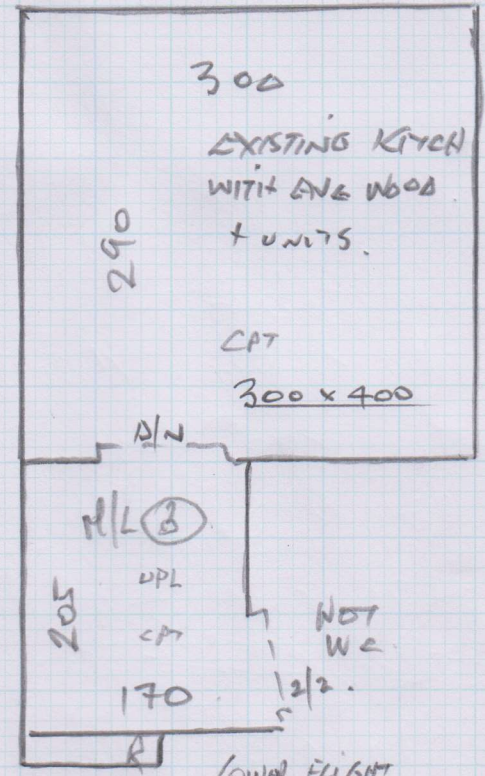 300
EXISTING KITCH
WITH ENG WOOD
+ UNITS.
290
CPT
300 x 400
D/N
M/L 3
UPL
CPT
205
NOT
WC
170
2/2.
R
LOWER FLIGHT